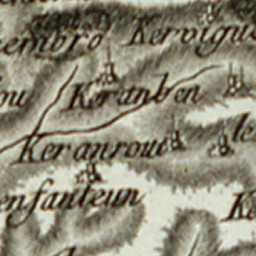 embro Kervigu
ou Keranben
Keranroue le
enfanteun K